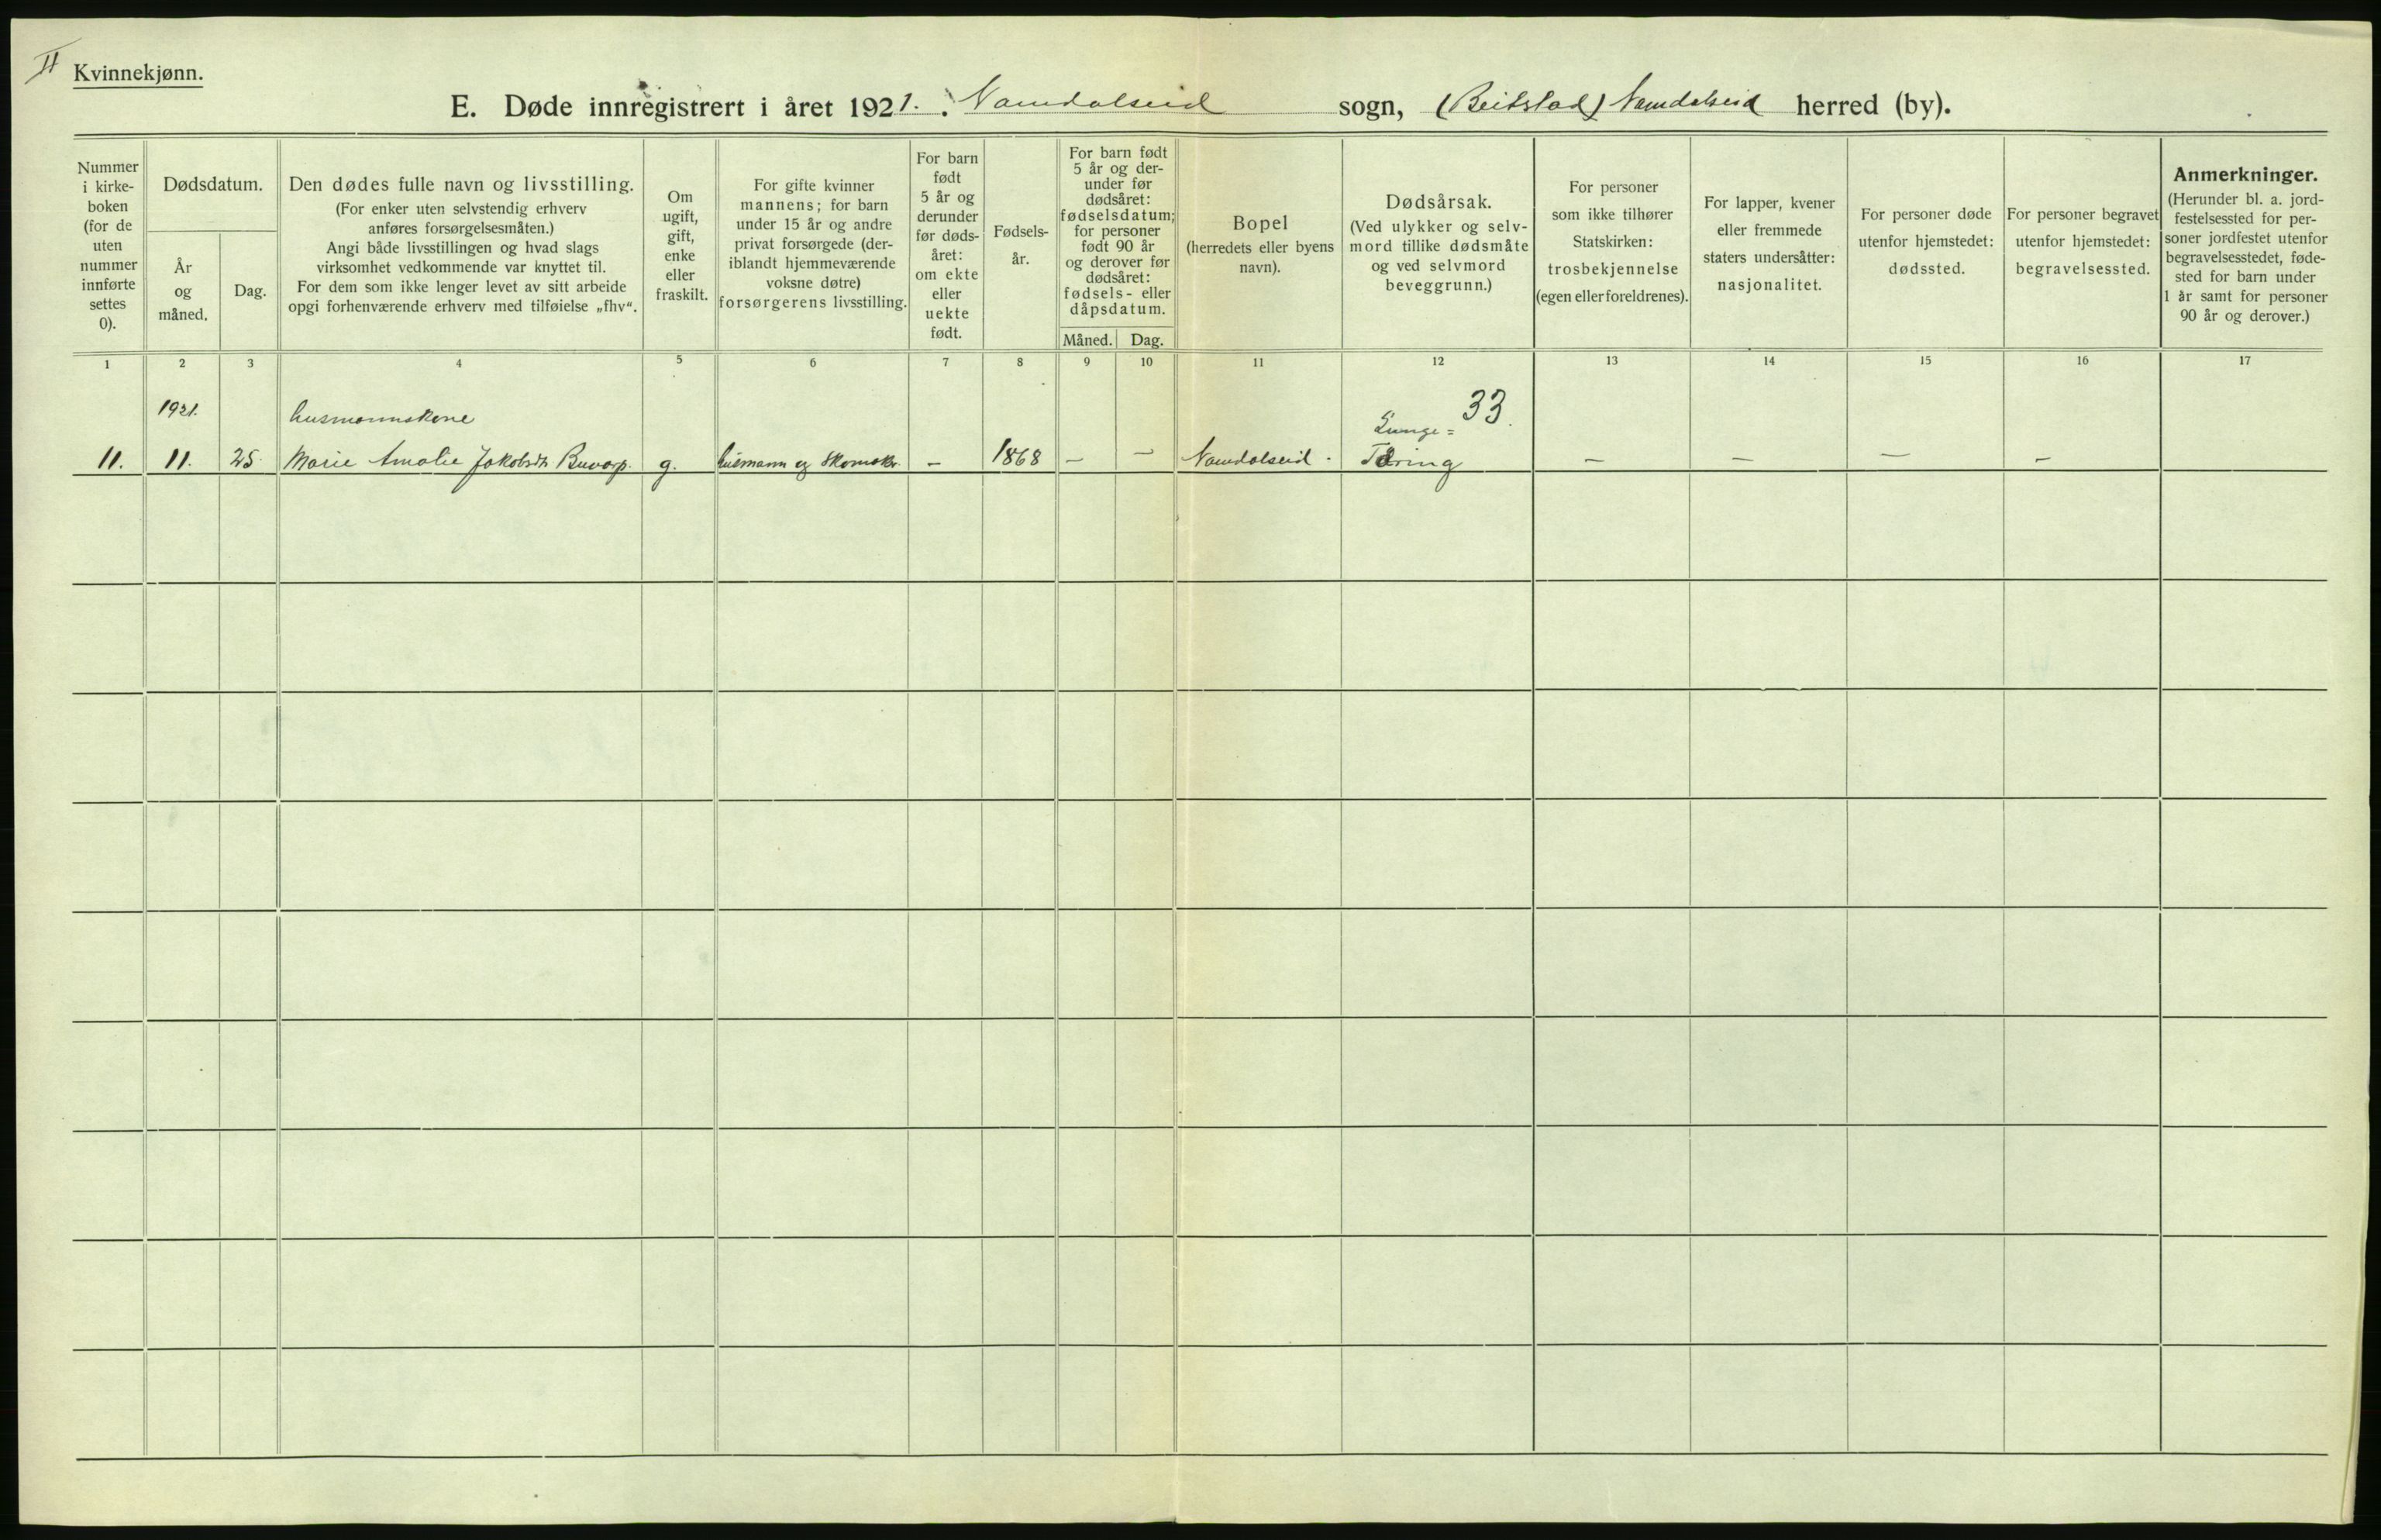 II
Kvinnekjønn.
E. Døde innregistrert i året 1921. Namdalseid sogn, (Beitstad) Namdalseid herred (by).
Nummer
i kirke-
boken
(for de
uten
nummer
innførte
settes
0).
Dødsdatum.
År
og
måned.
Dag.
Den dødes fulle navn og livsstilling.
(For enker uten selvstendig erhverv
anføres forsørgelsesmåten.)
Angi både livsstillingen og hvad slags
virksomhet vedkommende var knyttet til.
For dem som ikke lenger levet av sitt arbeide
opgi forhenværende erhverv med tilføielse „fhv“.
Om
ugift,
gift,
enke
eller
fraskilt.
For gifte kvinner
mannens; for barn
under 15 år og andre
privat forsørgede (der-
iblandt hjemmeværende
voksne døtre)
forsørgerens livsstilling.
For barn
født
5 år og
derunder
før døds-
året:
om ekte
eller
uekte
født.
Fødsels-
år.
For barn født
5 år og der-
under før
dødsåret:
fødselsdatum;
for personer
født 90 år
og derover før
dødsåret:
fødsels- eller
dåpsdatum.
Måned.
Dag.
Bopel
(herredets eller byens
navn).
Dødsårsak.
(Ved ulykker og selv-
mord tillike dødsmåte
og ved selvmord
beveggrunn.)
For personer
som ikke tilhører
Statskirken:
trosbekjennelse
(egen eller foreldrenes).
For lapper, kvener
eller fremmede
staters undersåtter:
nasjonalitet.
For personer døde
utenfor hjemstedet:
dødssted.
For personer begravet
utenfor hjemstedet:
begravelsessted.
Anmerkninger.
(Herunder bl. a. jord-
festelsessted for per-
soner jordfestet utenfor
begravelsesstedet, føde-
sted for barn under
1 år samt for personer
90 år og derover.)
1 2 3 4 5 6 7 8 9 10 11 12 13 14 15 16 17
1921. husmannskone Lunge= 33.
11. 11. 25. Marie Amalie Jakobsdt. Buvarp. g. husmann og skomaker. – 1868 – – Namdalseid. Tæring – – – –